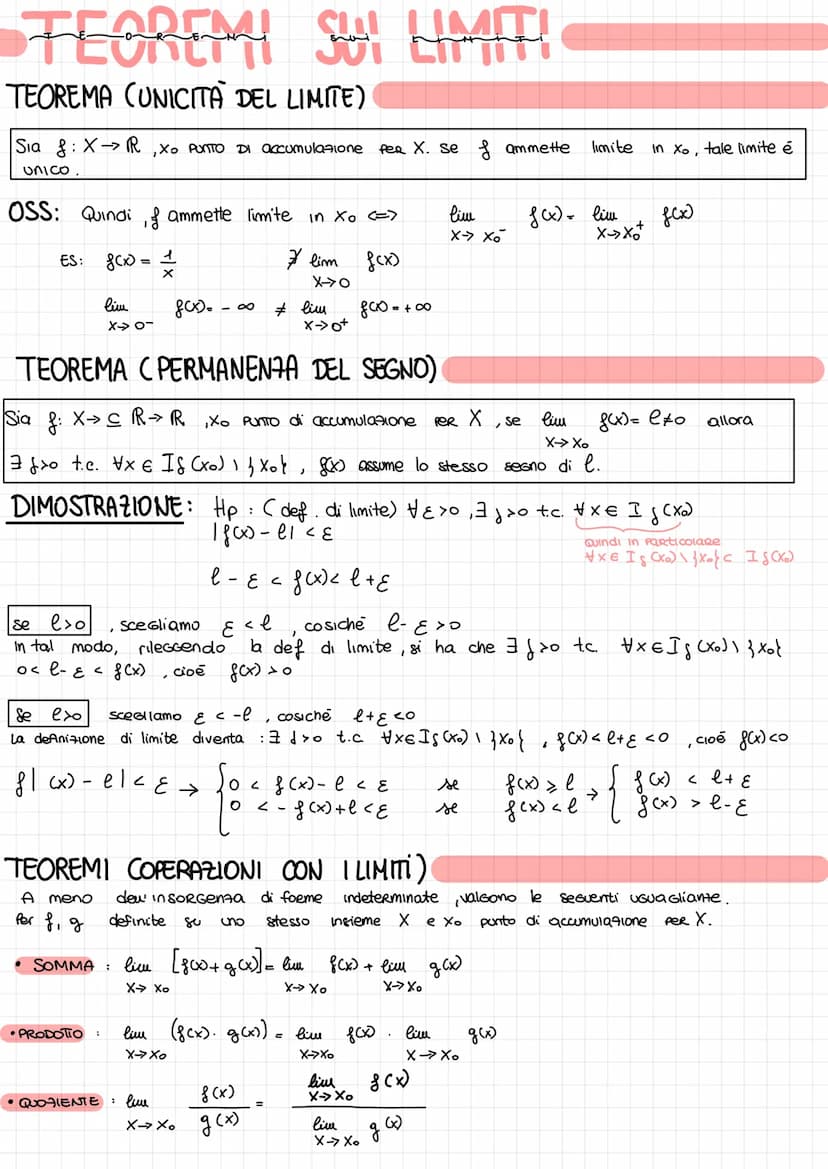 TEOREMI SUI LIMITI
TEOREMI SUI LIMITI
TEOREMA (UNICITÀ DEL LIMITE)
Sia f: X → ℝ, x₀ PUNTO DI accumulazione PER X. Se f ammette limite in x₀, tale limite é
unico.
OSS: Quindi, f ammette limite in x₀ <=> lim x→x₀⁻ f(x) = lim x→x₀⁺ f(x)
ES: f(x) = 1/x ∄ lim x→0 f(x)
lim x→0⁻ f(x) = -∞ ≠ lim x→0⁺ f(x) = +∞
TEOREMA (PERMANENZA DEL SEGNO)
Sia f: X → ⊆ ℝ → ℝ, x₀ PUNTO di accumulazione PER X, se lim x→x₀ f(x) = l ≠ 0 allora
∃ δ>0 t.c. ∀x ∈ Iδ(x₀) \ }x₀{, f(x) assume lo stesso segno di l.
DIMOSTRAZIONE: Hp: (def. di limite) ∀ε>0, ∃ δ>0 t.c. ∀x ∈ Iδ(x₀)
|f(x) - l| < ε
quindi in particolare
∀x ∈ Iδ(x₀) \ }x₀{ ⊂ Iδ(x₀)
l - ε < f(x) < l + ε
se l>0, scegliamo ε < l, cosiché l - ε > 0
in tal modo, rileggendo la def di limite, si ha che ∃ δ>0 tc. ∀x ∈ Iδ(x₀) \ }x₀{
0 < l - ε < f(x), cioé f(x) > 0
Se l>0 scegliamo ε < -l, cosiché l + ε < 0
La definizione di limite diventa: ∃ δ>0 t.c ∀x ∈ Iδ(x₀) \ }x₀{, f(x) < l + ε < 0, cioé f(x) < 0
f|(x) - l| < ε → { 0 < f(x) - l < ε se f(x) ⩾ l → { f(x) < l + ε
0 < - f(x) + l < ε se f(x) < l f(x) > l - ε
TEOREMI (OPERAZIONI CON I LIMITI)
A meno dell'insorgenza di forme indeterminate, valgono le seguenti uguaglianze.
Per f, g definite su uno stesso insieme X e x₀ punto di accumulazione PER X.
• SOMMA: lim x→x₀ [f(x) + g(x)] = lim x→x₀ f(x) + lim x→x₀ g(x)
• PRODOTTO: lim x→x₀ (f(x) · g(x)) = lim x→x₀ f(x) · lim x→x₀ g(x)
• QUOZIENTE: lim x→x₀ f(x)/g(x) = lim x→x₀ f(x) / lim x→x₀ g(x)